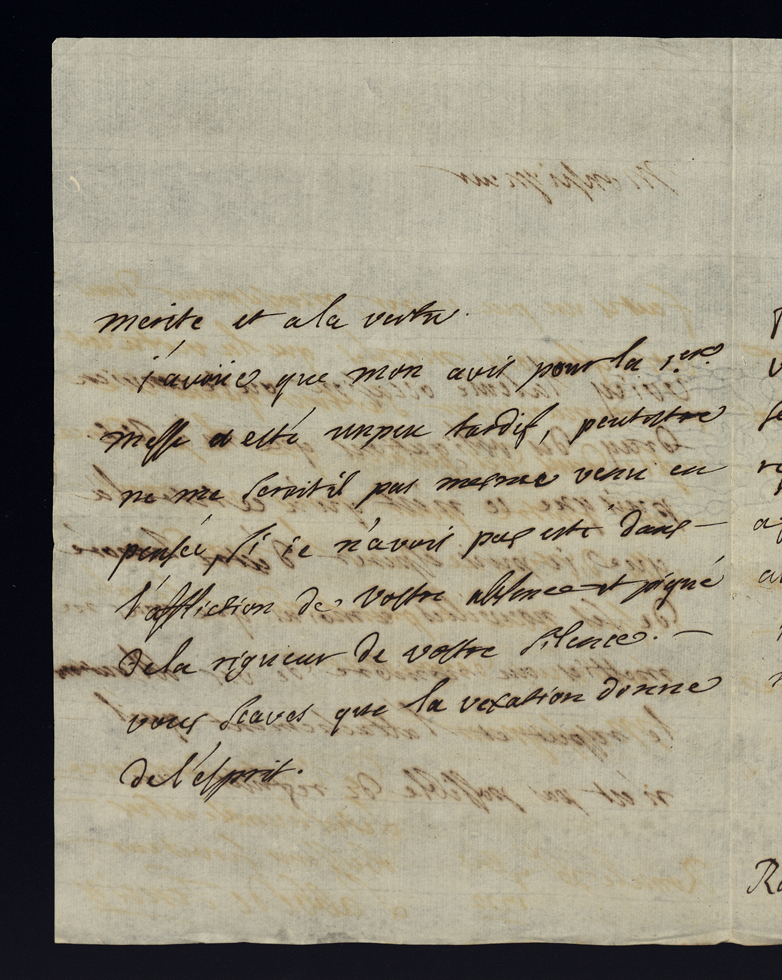 merite et a la vertu.
j'avoüe que mon avis pour la 1.ere
messe a esté unpeu tardif, peutestre
ne me seroit il pas mesme venu en
pensée, si je n'avois pas esté dans –
l'affliction de vostre absence et piqué
dela rigueur de vostre silence. –
vous scaves que la vexation donne
de l'esprit.